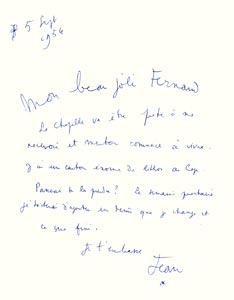 5 Sept
1956
Mon beau joli Fernand
La Chapelle va être prête à me
recevoir et Menton commence à vivre.
Il y a un carton énorme de lettres
Pourrais tu le prendre? La semaine prochaine
j'attends d'ajouter un dessin que je change et
ce sera fini.
Je t'embrasse
Jean
*